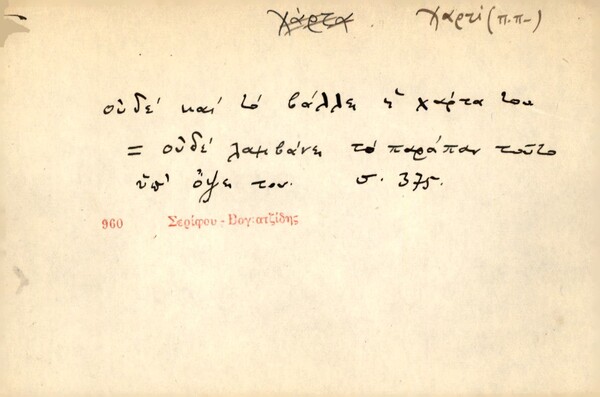 χάρτα χαρτί (π.π-)
οὐδέ καί τό βάλλει ἡ χάρτα του
= οὐδέ λαμβάνει τό παράπαν τοῦτο
ὑπ' ὄψει του. σ. 375.
960 Σερίφου - Βογιατζίδης